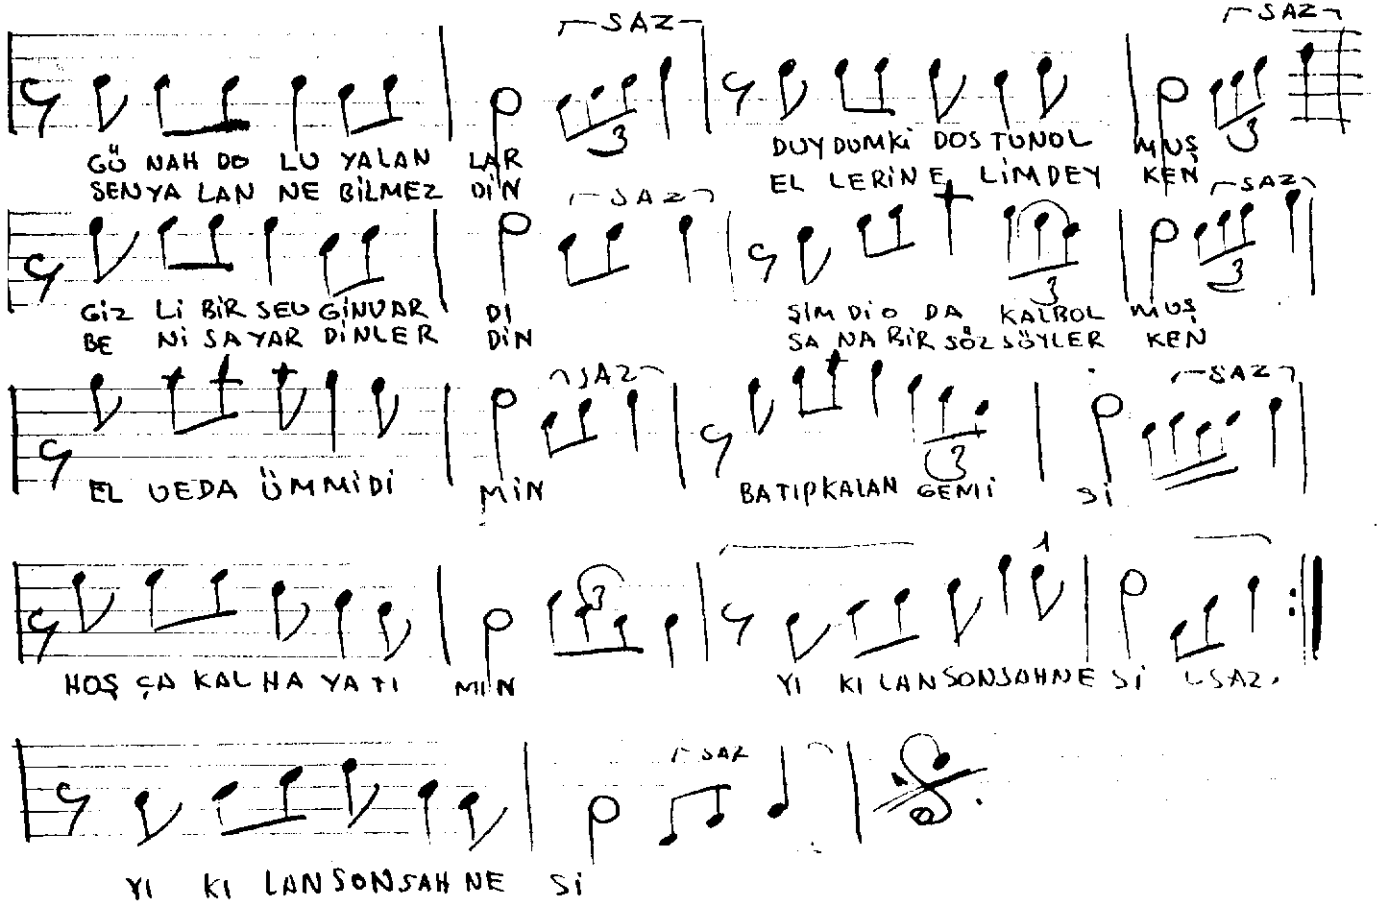 SAZ SAZ
GÜ NAH DO LU YALAN LAR DUYDUMKİ DOSTUNOL MUŞ
SENYA LAN NE BİLMEZ DİN EL LERİNE LİMDEY KEN
SAZ SAZ
GİZ Lİ BİR SEV GİNVAR DI ŞİMDİO DA KALBOL MUŞ
BE Nİ SAYAR DİNLER DİN SA NA BİR SÖZ SÖYLER KEN
SAZ SAZ
EL VEDA ÜMMİDİ MİN BATIPKALAN GEMİ Sİ
HOŞ ÇA KAL HA YA TI MIN YI KI LANSONSAHNE Sİ SAZ
SAZ
YI KI LANSONSAH NE Sİ